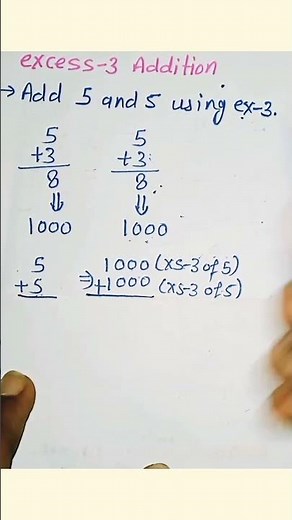 excess-3 Addition
→ Add 5 and 5 using ex-3.
5 5
+3 +3
8 8
⇓ ⇓
1000 1000
5 1000 (xs-3 of 5)
+5 ⇒ +1000 (xs-3 of 5)